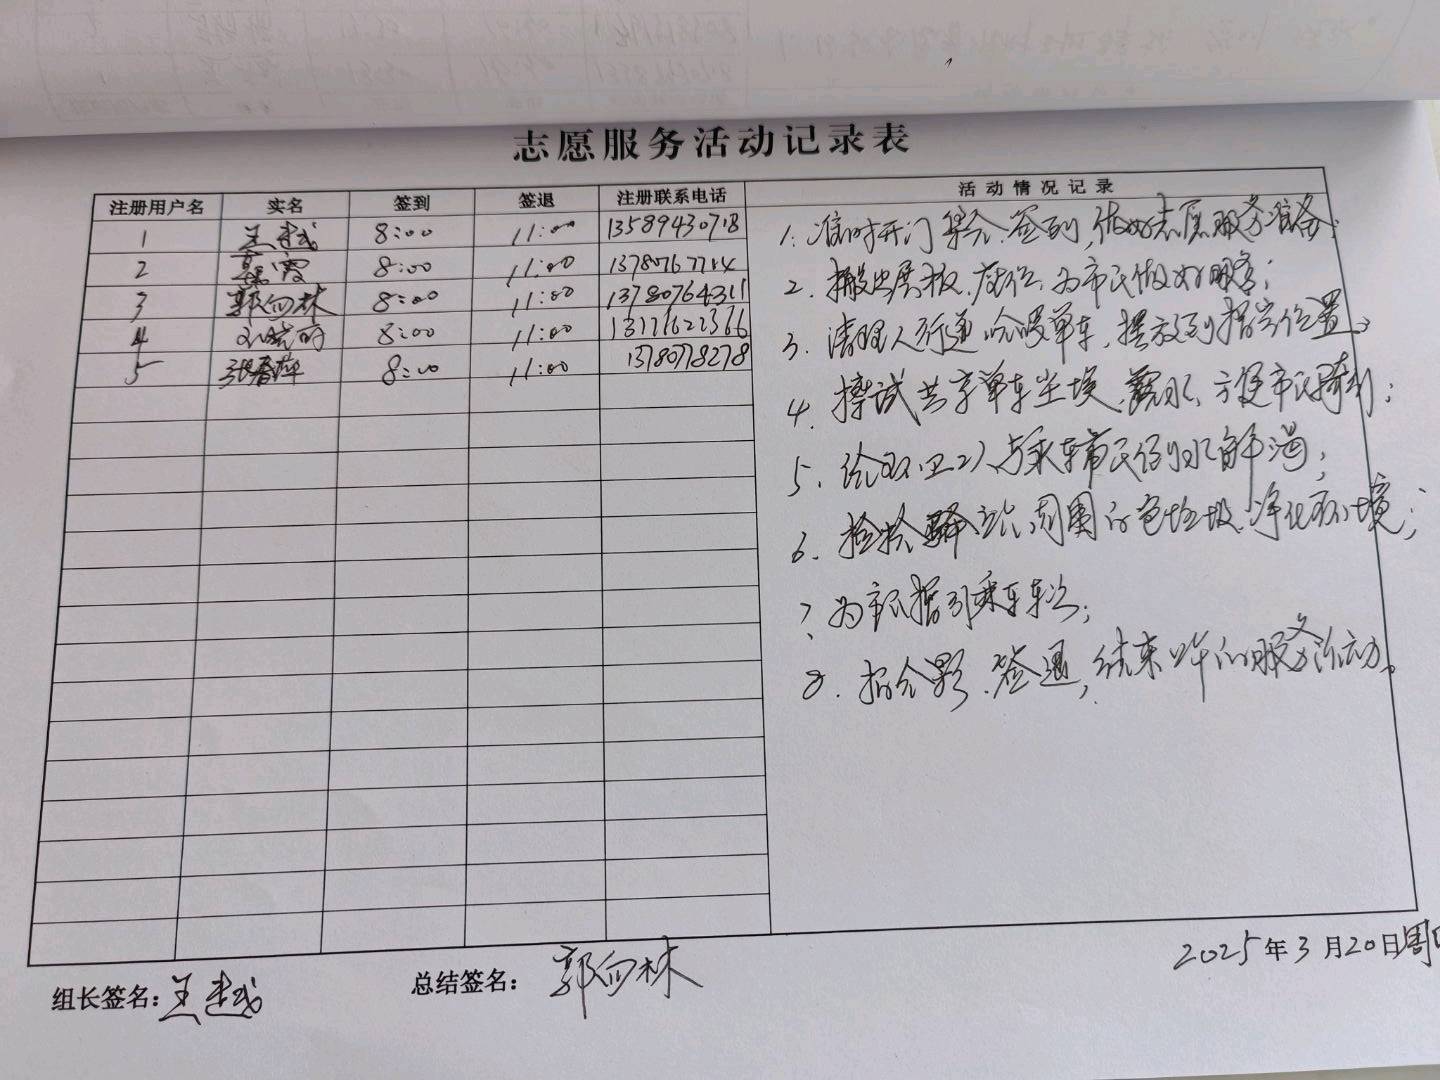 志愿服务活动记录表
注册用户名 实名 签到 签退 注册联系电话 活动情况记录
1 王越 8:00 11:00 13589430718
2 霞 8:00 11:00
3 郭向林 8:00 11:00 13780764311
4 刘晓明 8:00 11:00
5 张春萍 8:00 11:00
1. 准时开门集合、签到,做好志愿服务准备;
2. 搬出展板、座位、为市民做好服务;
3. 清理人行道哈啰单车,摆放到指定位置。
4. 擦试共享单车尘埃、露水、方便市民骑行;
5. 给环卫工人、与乘车市民倒水解渴;
6. 捡拾驿站周围白色垃圾、净化环境;
7. 为市民指引乘车车次;
8. 拍合影、签退,结束上午的服务活动。
2025年3月20日周四
组长签名:王越 总结签名:郭向林